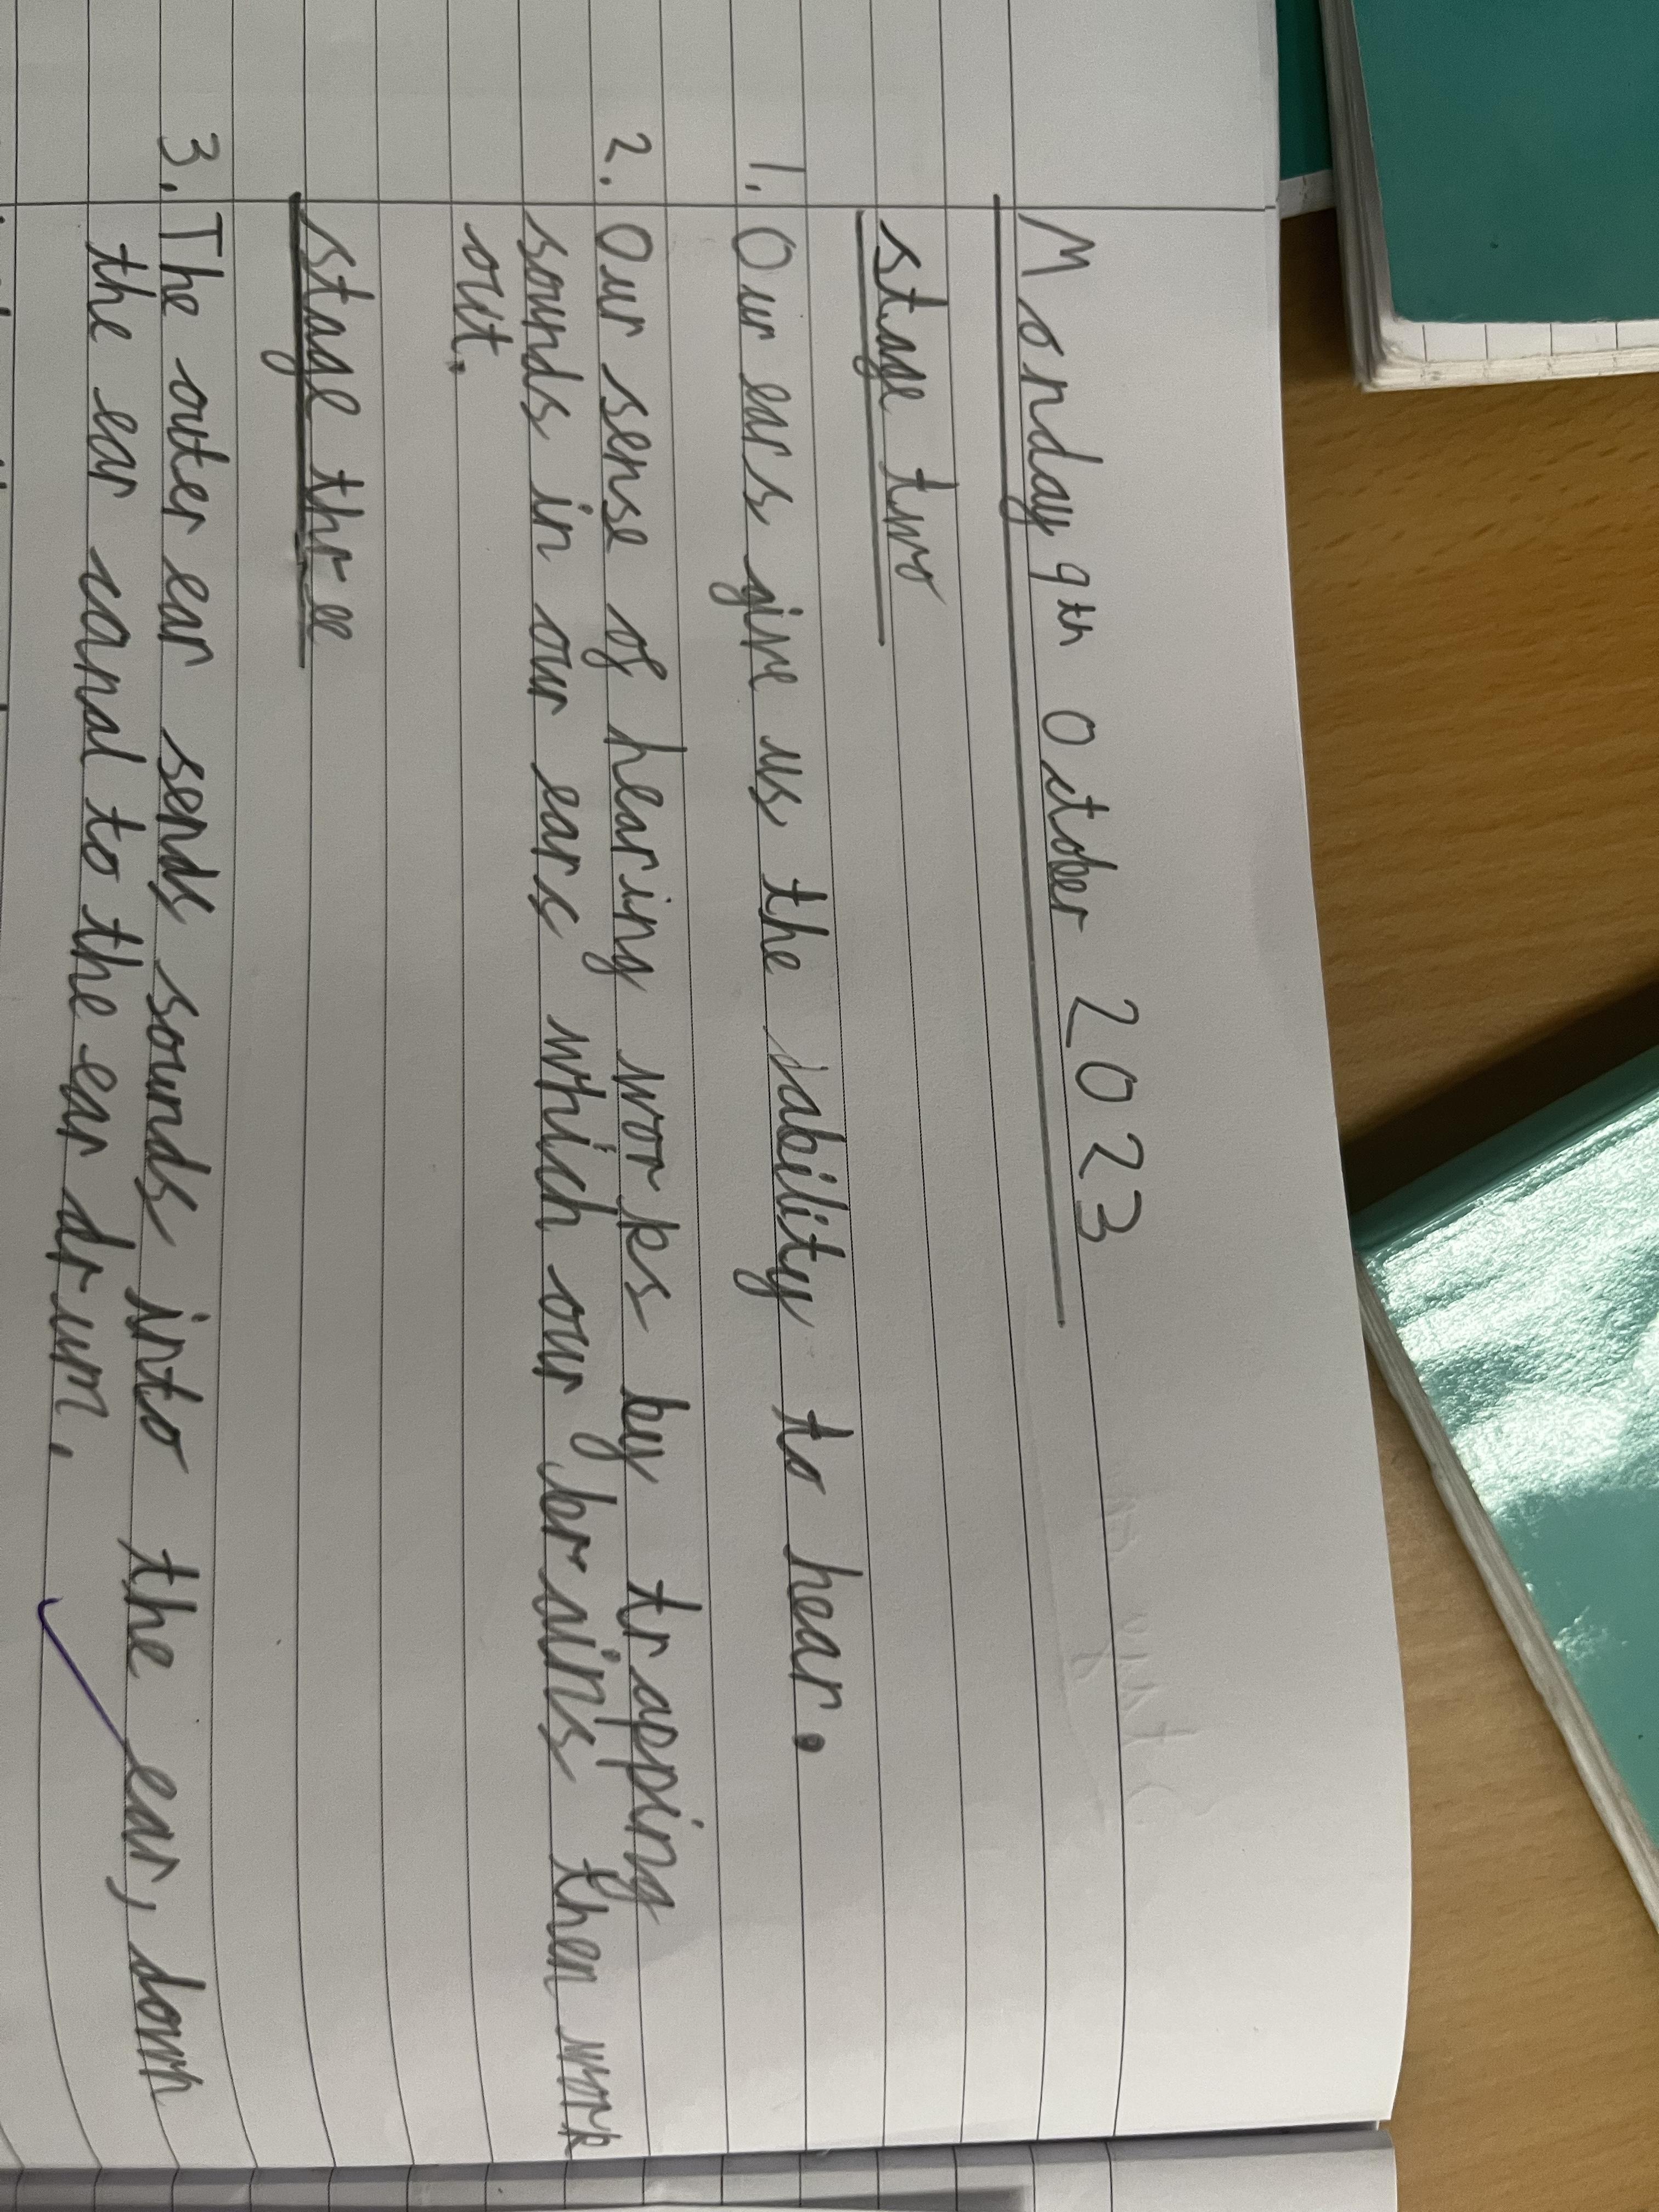 Monday 9th October 2023
stage two
1. Our ears give us the ability to hear.
2. Our sense of hearing works by trapping
sounds in our ears which our brains then work
out.
stage three
3. The outer ear sends sounds into the ear, down
the ear canal to the ear drum.